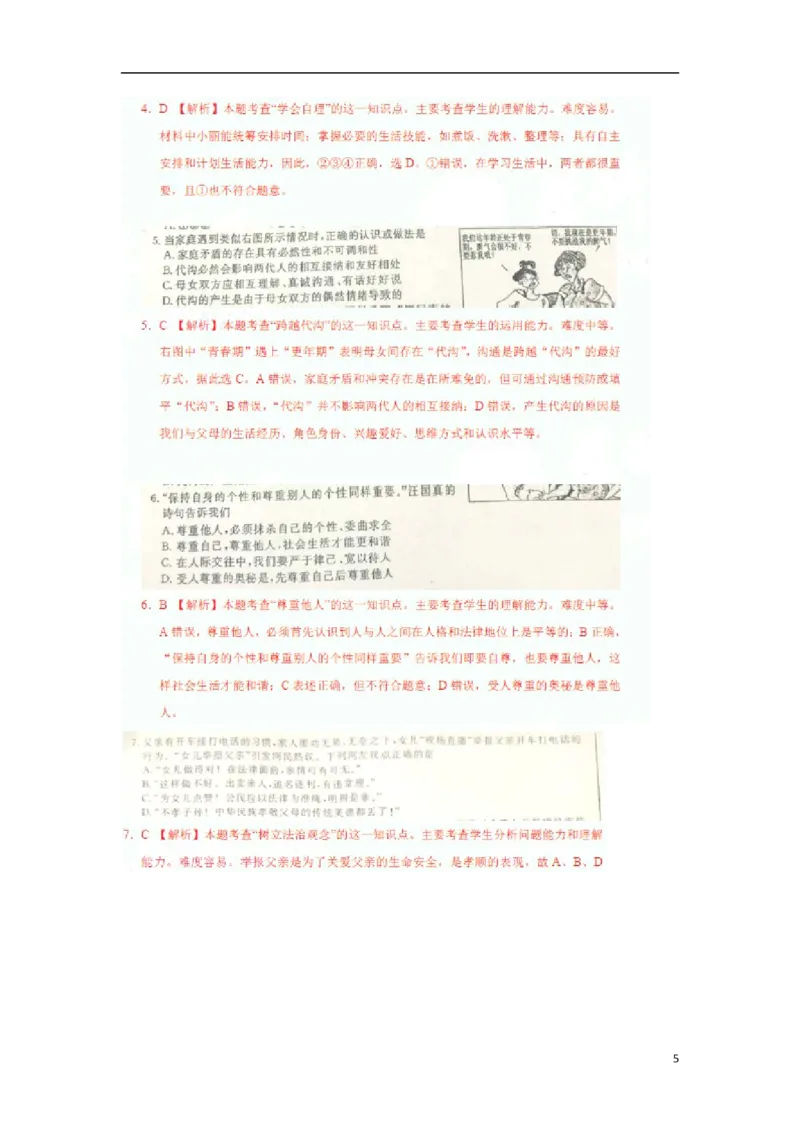 4. D 【解析】本题考查“学会自理”的这一知识点。主要考查学生的理解能力。难度容易。
材料中小丽能统筹安排时间；掌握必要的生活技能，如煮饭、洗漱、整理等；具有自主
安排和计划生活能力，因此，②③④正确，选D。①错误，在学习生活中，两者都很重
要，且①也不符合题意。
5. 当家庭遇到类似右图所示情况时，正确的认识或做法是
A. 家庭矛盾的存在具有必然性和不可调和性
B. 代沟必然会影响两代人的相互接纳和友好相处
C. 母女双方应相互理解、真诚沟通、有话好好说
D. 代沟的产生是由于母女双方的偶然情绪导致的
我们这年龄正处于青春
期，脾气会很不好，不
要惹我哦！
切，我现在是更年期，
不要挑战我的脾气！
5. C 【解析】本题考查“跨越代沟”的这一知识点。主要考查学生的运用能力。难度中等。
右图中“青春期”遇上“更年期”表明母女间存在“代沟”，沟通是跨越“代沟”的最好
方式，据此选C。A错误，家庭矛盾和冲突存在是在所难免的，但可通过沟通预防或填
平“代沟”；B错误，“代沟”并不影响两代人的相互接纳；D错误，产生代沟的原因是
我们与父母的生活经历、角色身份、兴趣爱好、思维方式和认识水平等。
6. “保持自身的个性和尊重别人的个性同样重要。”汪国真的
诗句告诉我们
A. 尊重他人，必须抹杀自己的个性、委曲求全
B. 尊重自己，尊重他人，社会生活才能更和谐
C. 在人际交往中，我们要严于律己、宽以待人
D. 受人尊重的奥秘是，先尊重自己后尊重他人
6. B 【解析】本题考查“尊重他人”的这一知识点。主要考查学生的理解能力。难度中等。
A错误，尊重他人，必须首先认识到人与人之间在人格和法律地位上是平等的；B正确，
“保持自身的个性和尊重别人的个性同样重要”告诉我们即要自尊，也要尊重他人，这
样社会生活才能和谐；C表述正确，但不符合题意；D错误，受人尊重的奥秘是尊重他
人。
7. 父亲有开车接打电话的习惯，家人屡劝无果。无奈之下，女儿“现场直播”举报父亲开车打电话的
行为。“女儿举报父亲”引发网民热议。下列网友观点正确的是
A. “女儿做得对！在法律面前，亲情可有可无。”
B. “这样做不好。出卖亲人，追名逐利，有违常理。”
C. “为女儿点赞！公民应以法律为准绳，明辨是非。”
D. “不孝子孙！中华民族孝敬父母的传统美德都丢了！”
7. C 【解析】本题考查“树立法治观念”的这一知识点。主要考查学生分析问题能力和理解
能力。难度容易。举报父亲是为了关爱父亲的生命安全，是孝顺的表现，故A、B、D
5